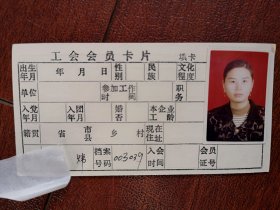 工会会员卡片 填卡
出生年月 年 月 日 性别 民族 文化程度
单位 参加工作时间 职务
入党年月 入团年月 婚否 本企业工龄
籍贯 省 市县 乡 村 现在住址
档案号码 003039 入会时间 会员证号